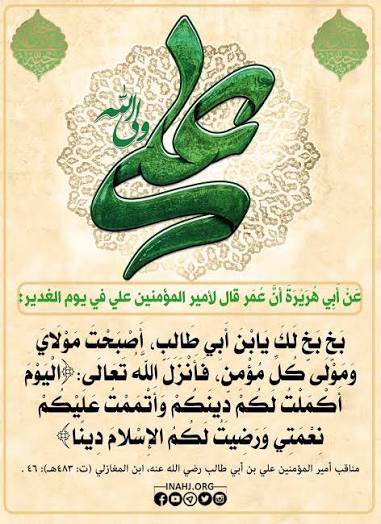 علي
ولي الله
عَنْ أَبِي هُرَيْرَةَ أَنَّ عُمَر قال لأمير المؤمنين علي في يوم الغدير:
بَخٍ بَخٍ لكَ يابْنَ أبي طالب، أصْبَحْتَ مَوْلاي
وَمَوْلى كلّ مُؤمن، فَأنْزَلَ اللَّهُ تَعالَى: ﴿الْيَوْمَ
أكمَلْتُ لكُمْ دينَكُمْ وَأتمَمْتُ عَلَيْكُمْ
نعْمَتِي وَرَضِيتُ لَكُمُ الإسْلامَ دينًا﴾
مناقب أمير المؤمنين علي بن أبي طالب رضي الله عنه، ابن المغازلي (ت: ٤٨٣هـ): ٤٦ .
INAHJ.ORG